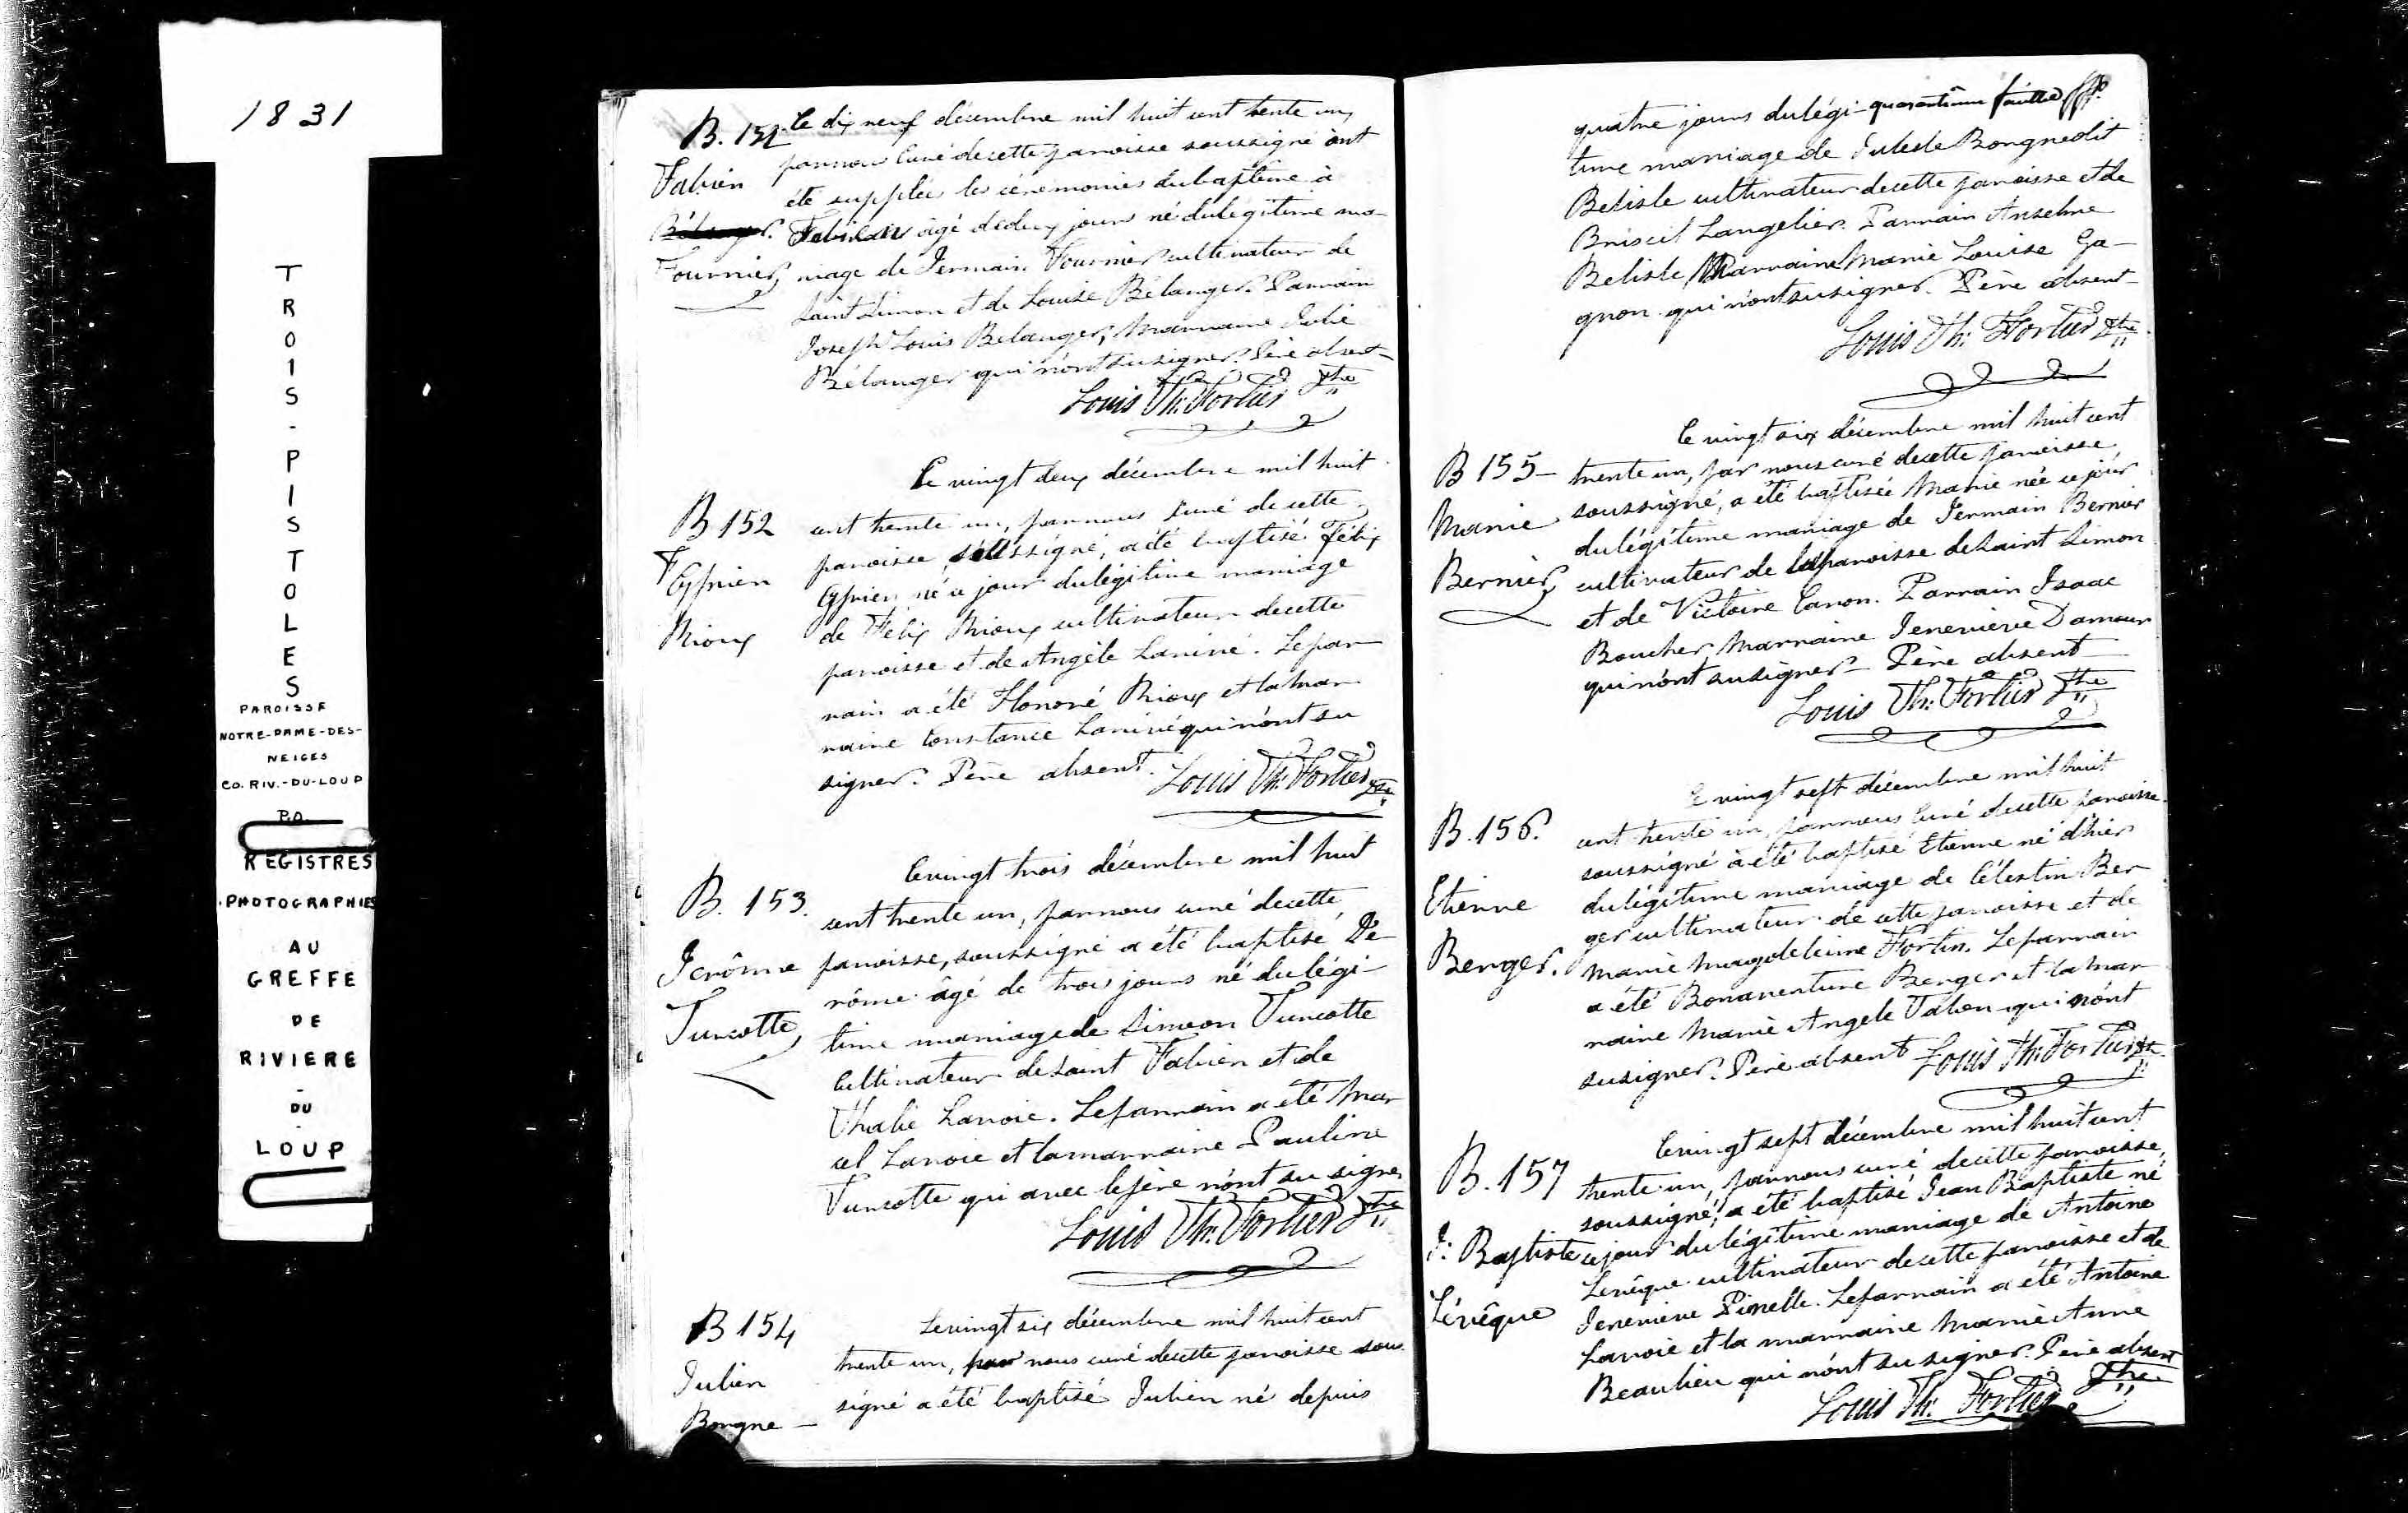 1831
TROIS-PISTOLES
PAROISSE
NOTRE-DAME-DES-
NEIGES
CO. RIV.-DU-LOUP
P.Q.
REGISTRES
PHOTOGRAPHIES
AU
GREFFE
DE
RIVIERE
-
DU
-
LOUP
B. 152
Fabien
Fournier
Le dix neuf décembre mil huit cent trente un,
par nous curé de cette paroisse soussigné ont
été supplées les cérémonies du baptême à
Fabien âgé de deux jours né du légitime ma-
riage de Germain Fournier cultivateur de
Saint Simon et de Louise Bélanger. Parrain
Joseph Louis Belanger, Marraine Julie
Bélanger qui n'ont su signer. Père absent-
Louis Th: Fortier Ptre
B 152
F
Cyprien
Rioux
Le vingt deux décembre mil huit
cent trente un, par nous curé de cette
paroisse soussigné, a été baptisé Félix
Cyprien né ce jour du légitime mariage
de Félix Rioux cultivateur de cette
paroisse et de Angèle Larivé. Le par-
rain a été Honoré Rioux et la mar-
raine Constance Larivé qui n'ont su
signer. Père absent. Louis Th: Fortier Ptre
B. 153.
Jerôme
Turcotte
Le vingt trois décembre mil huit
cent trente un, par nous curé de cette
paroisse, soussigné a été baptisé Je-
rôme âgé de trois jours né du légi-
time mariage de Simeon Turcotte
Cultivateur de Saint Fabien et de
Thalie Lavoie. Le parrain a été Mar-
cel Lavoie et la marraine Pauline
Turcotte qui avec le père n'ont su signer
Louis Th: Fortier Ptre
B 154
Julien
Borgne-
Le vingt six décembre mil huit cent
trente un, par nous curé de cette paroisse sous
signé a été baptisé Julien né depuis
quatre jours du légi-quarantième feuillet
time mariage de Jules le Borgne dit
Belisle cultivateur de cette paroisse et de
Langelier. Parrain Anselme
Belisle Marraine Marie Louise Ga-
gnon qui n'ont su signer. Père absent-
Louis Th: Fortier Ptre.
B 155-
Marie
Bernier
Le vingt six décembre mil huit cent
trente un, par nous curé de cette paroisse
soussigné, a été baptisée Marie née ce jour
du légitime mariage de Germain Bernier
cultivateur de la paroisse de Saint Simon
et de Victoire Caron. Parrain Isaac
Boucher Marraine Genevieve Damour
qui n'ont su signer- Père absent-
Louis Th: Fortier Ptre
B. 156.
Etienne
Berger.
Le vingt sept décembre mil huit
cent trente un, par nous curé de cette paroisse
soussigné a été baptisé Etienne né d'hier
du légitime mariage de Célestin Ber
ger cultivateur de cette paroisse et de
Marie Magdeleine Fortin. Le parrain
a été Bonaventure Berger et la mar
raine Marie Angele Talon qui n'ont
su signer. Père absent Louis Th: Fortier Ptre.
B. 157
J: Baptiste
Lévêque
Le vingt sept décembre mil huit cent
trente un, par nous curé de cette paroisse,
soussigné, a été baptisé Jean Baptiste né
ce jour du légitime mariage de Antoine
Levêque cultivateur de cette paroisse et de
Genevieve Le parrain a été Antoine
Lavoie et la marraine Marie Anne
Beaulieu qui n'ont su signer. Père absent
Louis Th: Fortier Ptre